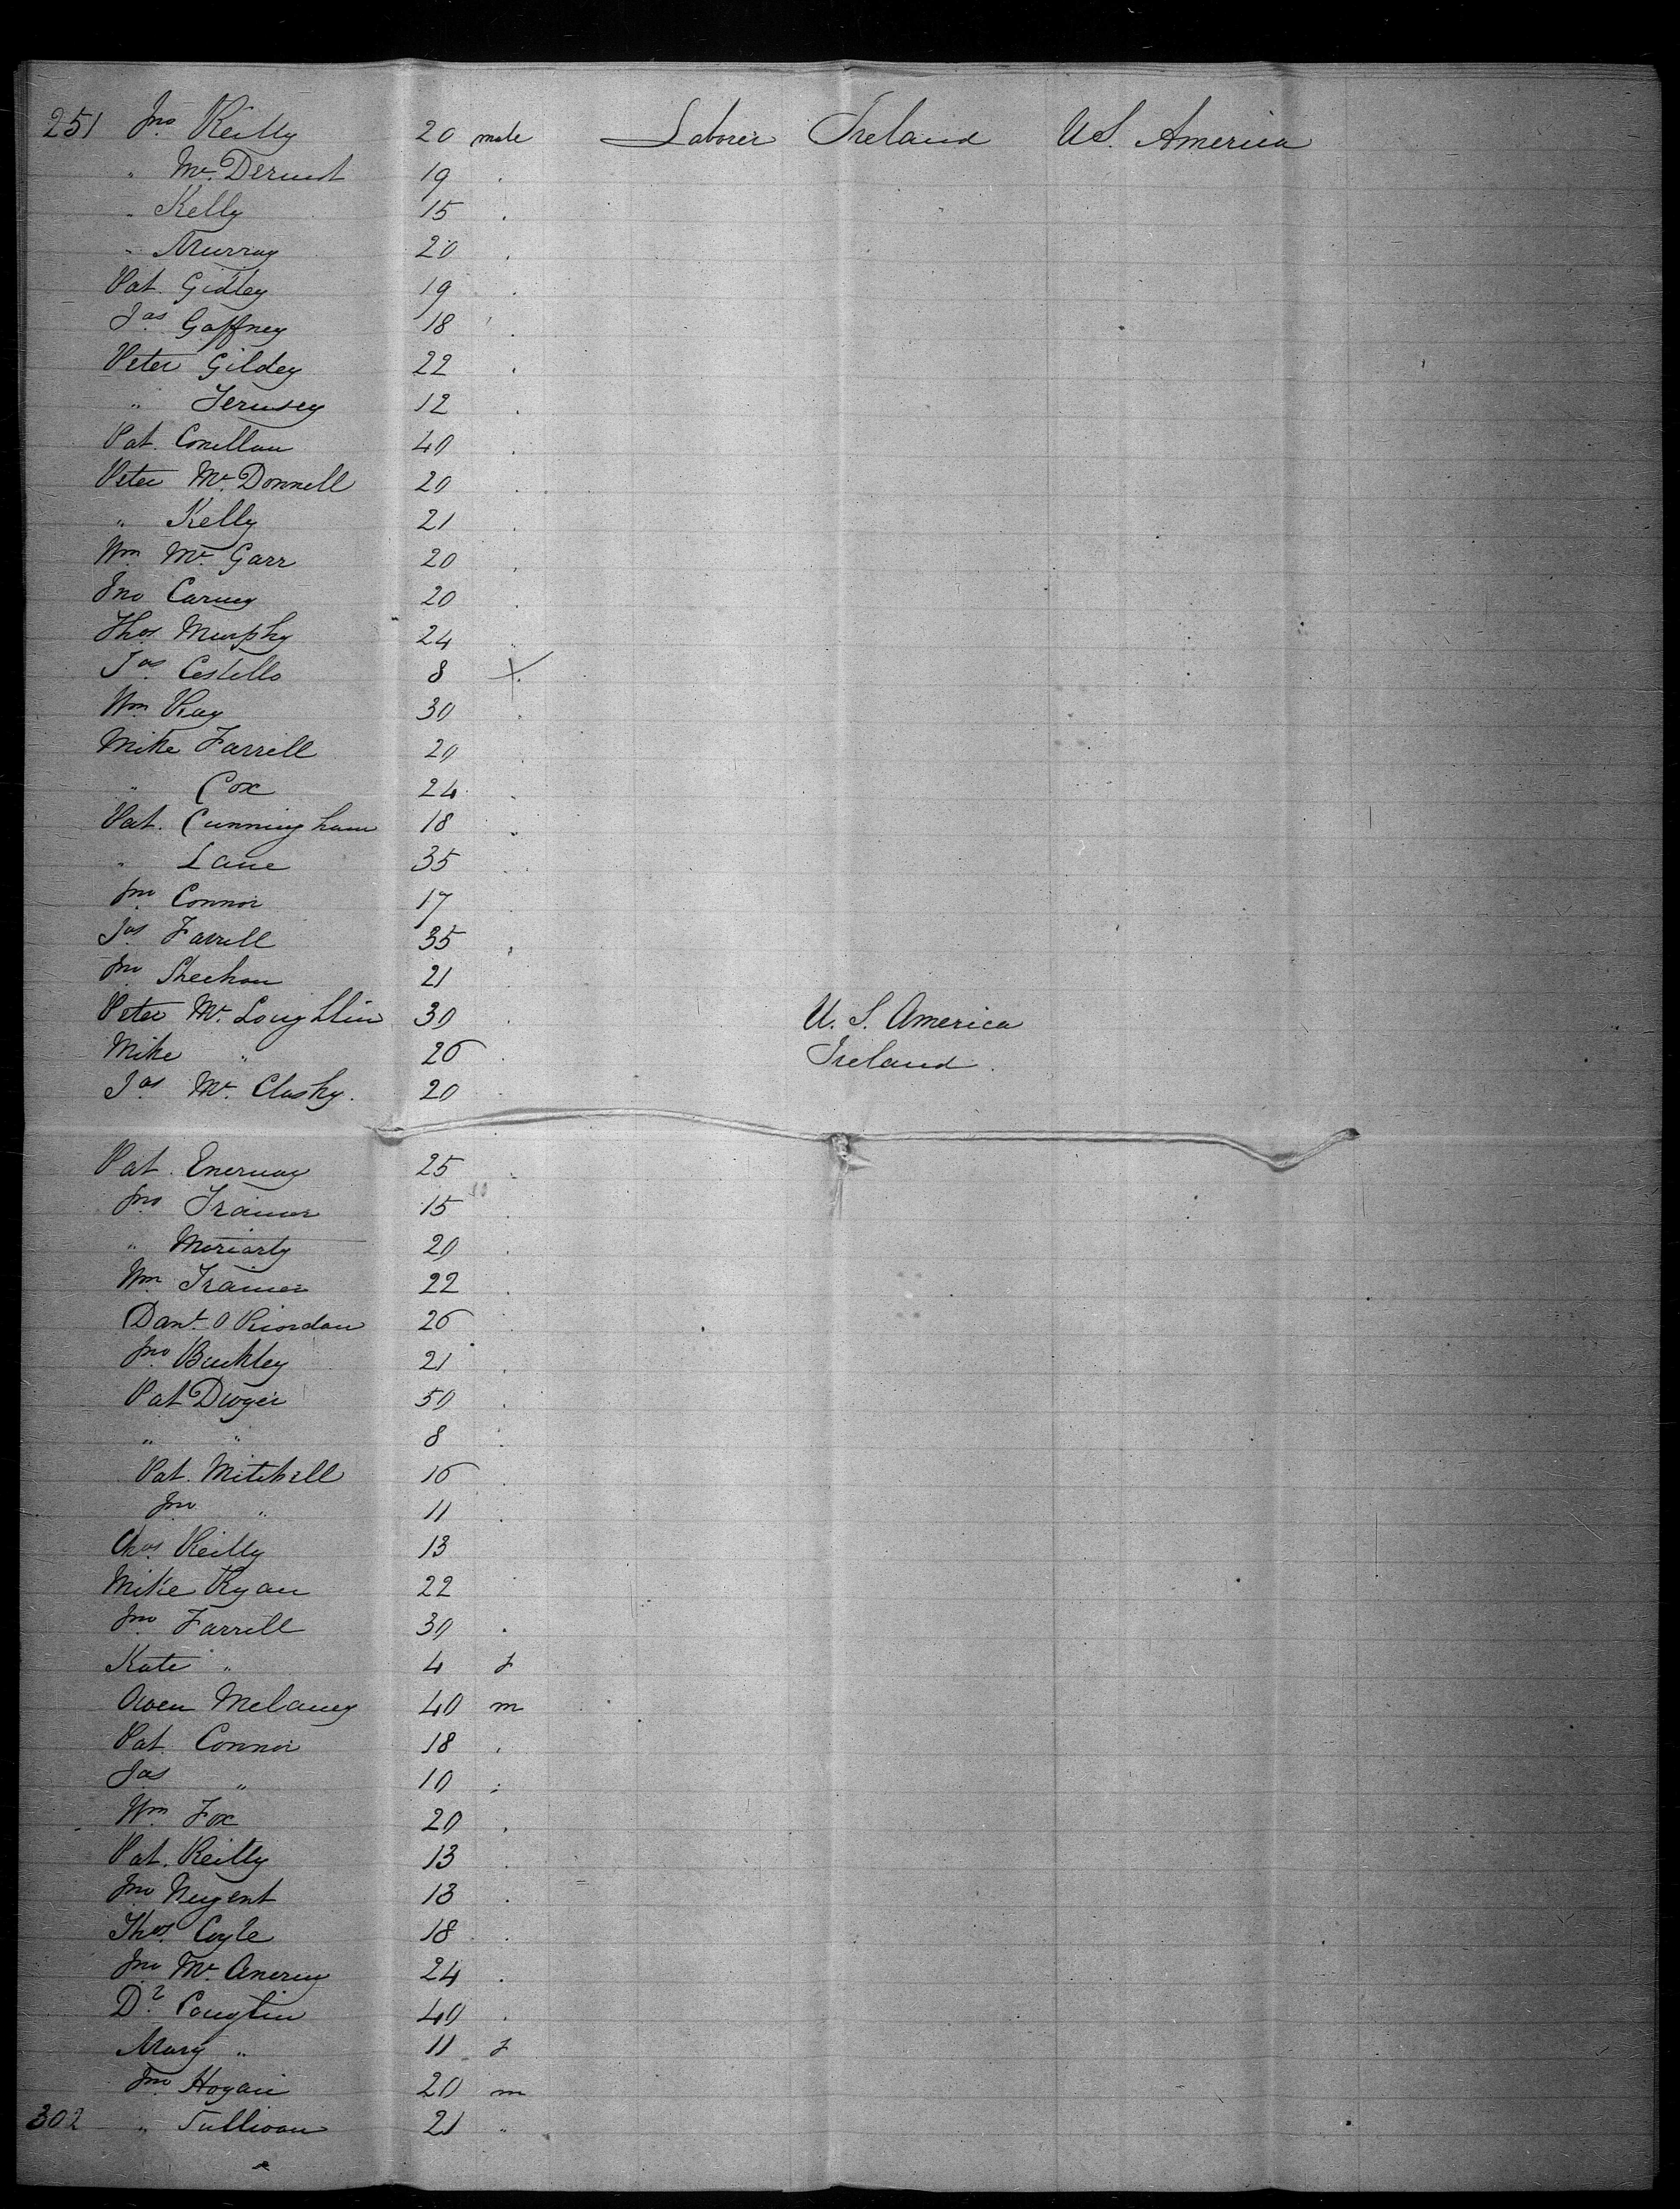 251 Jno Reilly 20 male Laborer Ireland U.S. America
" McDermt 19 "
" Kelly 15 "
" Murray 20 "
Pat. Gidley 19 "
Jas Gaffney 18 "
Peter Gildey 22 "
" 12 "
Pat. Conellan 40 "
Peter McDonnell 20 "
" Kelly 21 "
Wm McGarr 20 "
Jno Carney 20 "
Thos Murphy 24 "
Jas Costello 8 X
Wm Ray 30 "
Mike Farrell 20 "
" Cox 24 "
Pat. Cunningham 18 "
" Lane 35 "
Jno Connor 17 "
Jas Farrell 35 "
Jno Sheehan 21 "
Peter McLoughlin 30 " U. S. America
Mike " 26 " Ireland
Jas McClusky. 20 "
Pat. 25 "
Jno Trainor 15 "
" Moriarty 20 "
Wm Trainor 22 "
Danl O Riordan 26 "
Jno Buckley 21 "
Pat Dwyer 50 "
" " 8 "
Pat. Mitchell 16 "
Jno " 11 "
Chas Reilly 13
Mike Ryan 22 "
Jno Farrell 30 "
Kate " 4 f
Owen Melaney 40 m
Pat. Connor 18 "
Jas " 10 "
Wm Fox 20 "
Pat. Reilly 13 "
Jno Nugent 13 "
Thos Coyle 18 "
Jno 24 "
40 "
Mary " 11 f
Jno Hogan 20 m
302 " Sullivan 21 "